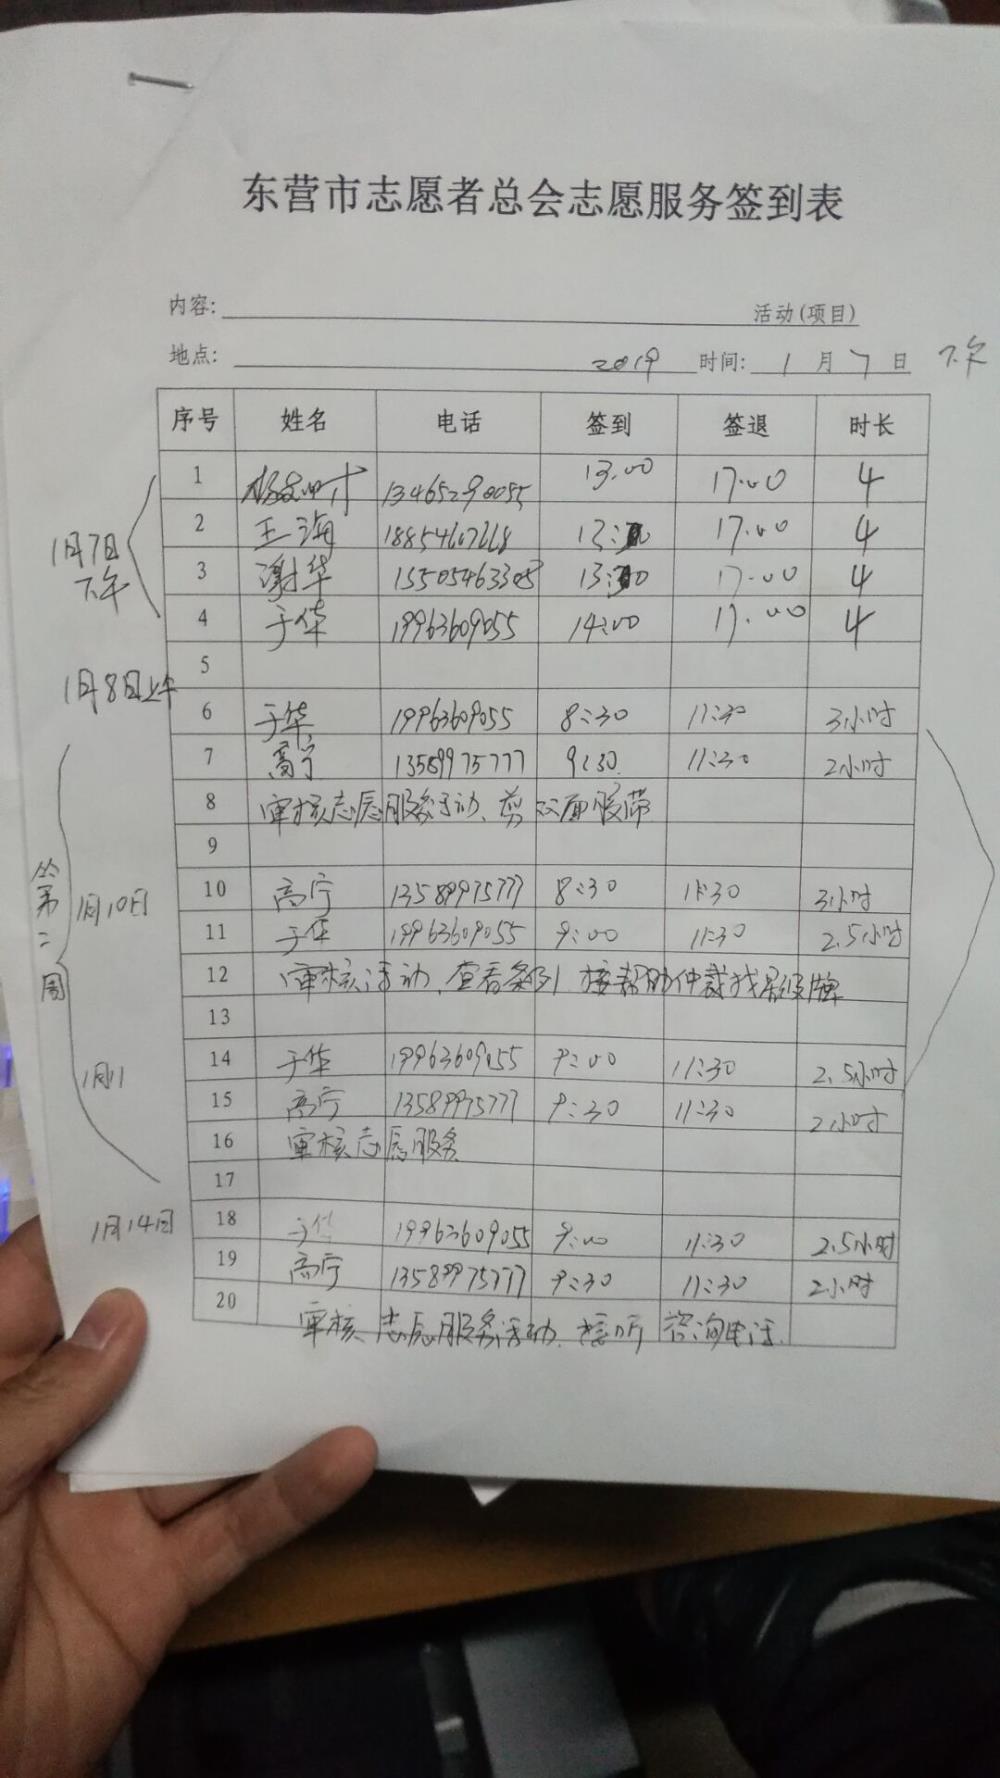 东营市志愿者总会志愿服务签到表
内容: 活动(项目)
地点: 2019 时间: 1月7日 下午
序号 姓名 电话 签到 签退 时长
1月7日下午
1 13465290055 13:00 17:00 4
2 王海 18854607668 13: 17:00 4
3 谢华 15505463305 13: 17:00 4
4 于华 19963609055 14:00 17:00 4
5
1月8日上午
6 于华 19963609055 8:30 11:30 3小时
7 高宁 13589975777 9:30 11:30 2小时
8 审核志愿服务活动、剪双面胶带
9
第二周
1月10日
10 高宁 13589975777 8:30 11:30 3小时
11 于华 19963609055 9:00 11:30 2.5小时
12 审核活动、查看条例、接帮助仲裁找星级牌
13
1月11
14 于华 19963609055 9:00 11:30 2.5小时
15 高宁 13589975777 9:30 11:30 2小时
16 审核志愿服务
17
1月14日
18 于华 19963609055 9:00 11:30 2.5小时
19 高宁 13589975777 9:30 11:30 2小时
20 审核志愿服务活动、接听咨询电话.